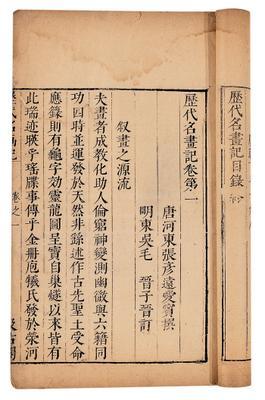 歷代名畫記目錄
歷代名畫記卷第一
唐河東張彥遠愛賓撰
明東吳毛 晉子晉訂
叙畫之源流
夫畫者成教化助人倫窮神變測幽微與六籍同
功四時並運發於天然非繇述作古先聖王受命
應籙則有龜字効靈龍圖呈寶自巢燧以來皆有
此瑞迹暎乎瑤牒事傳乎金冊庖犧氏發於滎河
卷之一